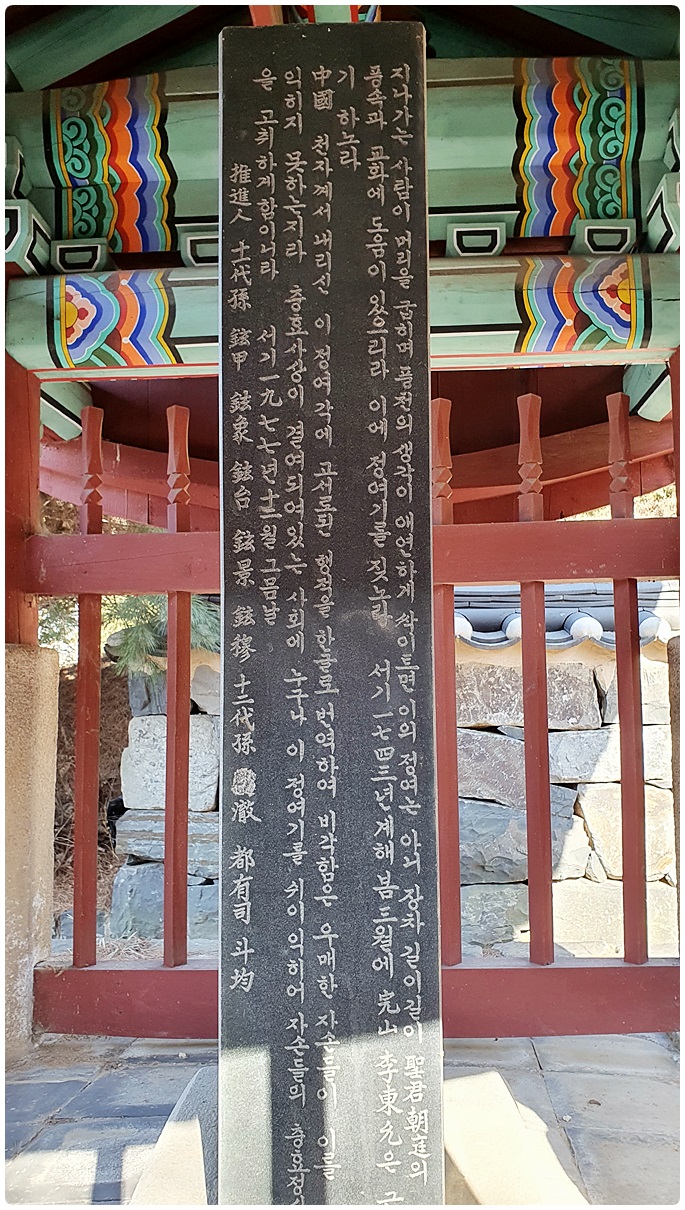 지나가는 사람이 머리를 굽히며 풍천의 생각이 애연하게 싹이트면 이의 정여는 아니 장차 길이길이 聖君朝庭의
풍속과 교화에 도움이 있으리라 이에 정여기를 짓노라 서기 一七四三년 계해 봄 三월에 完山 李東允은
기 하노라
中國 천자께서 내리신 이 정여각에 고서로된 행적을 한글로 번역하여 비각함은 우매한 자손들이 이를
익히지 못하는지라 충효사상이 결여되여있는 사회에 누구나 이 정여기를 쉬이 익히어 자손들의 충효정
을 고취하게함이니라 서기一九七七년 十二월 그믐날
推進人 十代孫 鉉甲 鉉象 鉉台 鉉景 鉉穆 十二代孫 澈 都有司 斗均